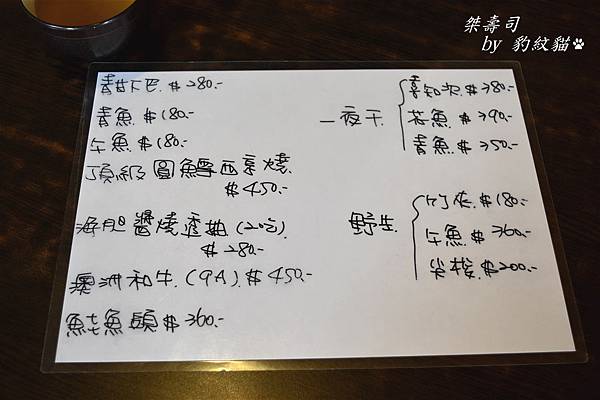 桀壽司
by 豹紋貓
青甘下巴 $280.-
青魚 $180.-
午魚 $180.-
頂級圓鱈西京燒
$450.-
海胆醬燒透抽(2吃)
$280.-
澳洲和牛(9A) $450.-
魽魚頭 $360.-
一夜干
喜知次 $380.-
花魚 $390.-
青魚 $350.-
野生
竹筴 $180.-
午魚 $360.-
尖梭 $200.-